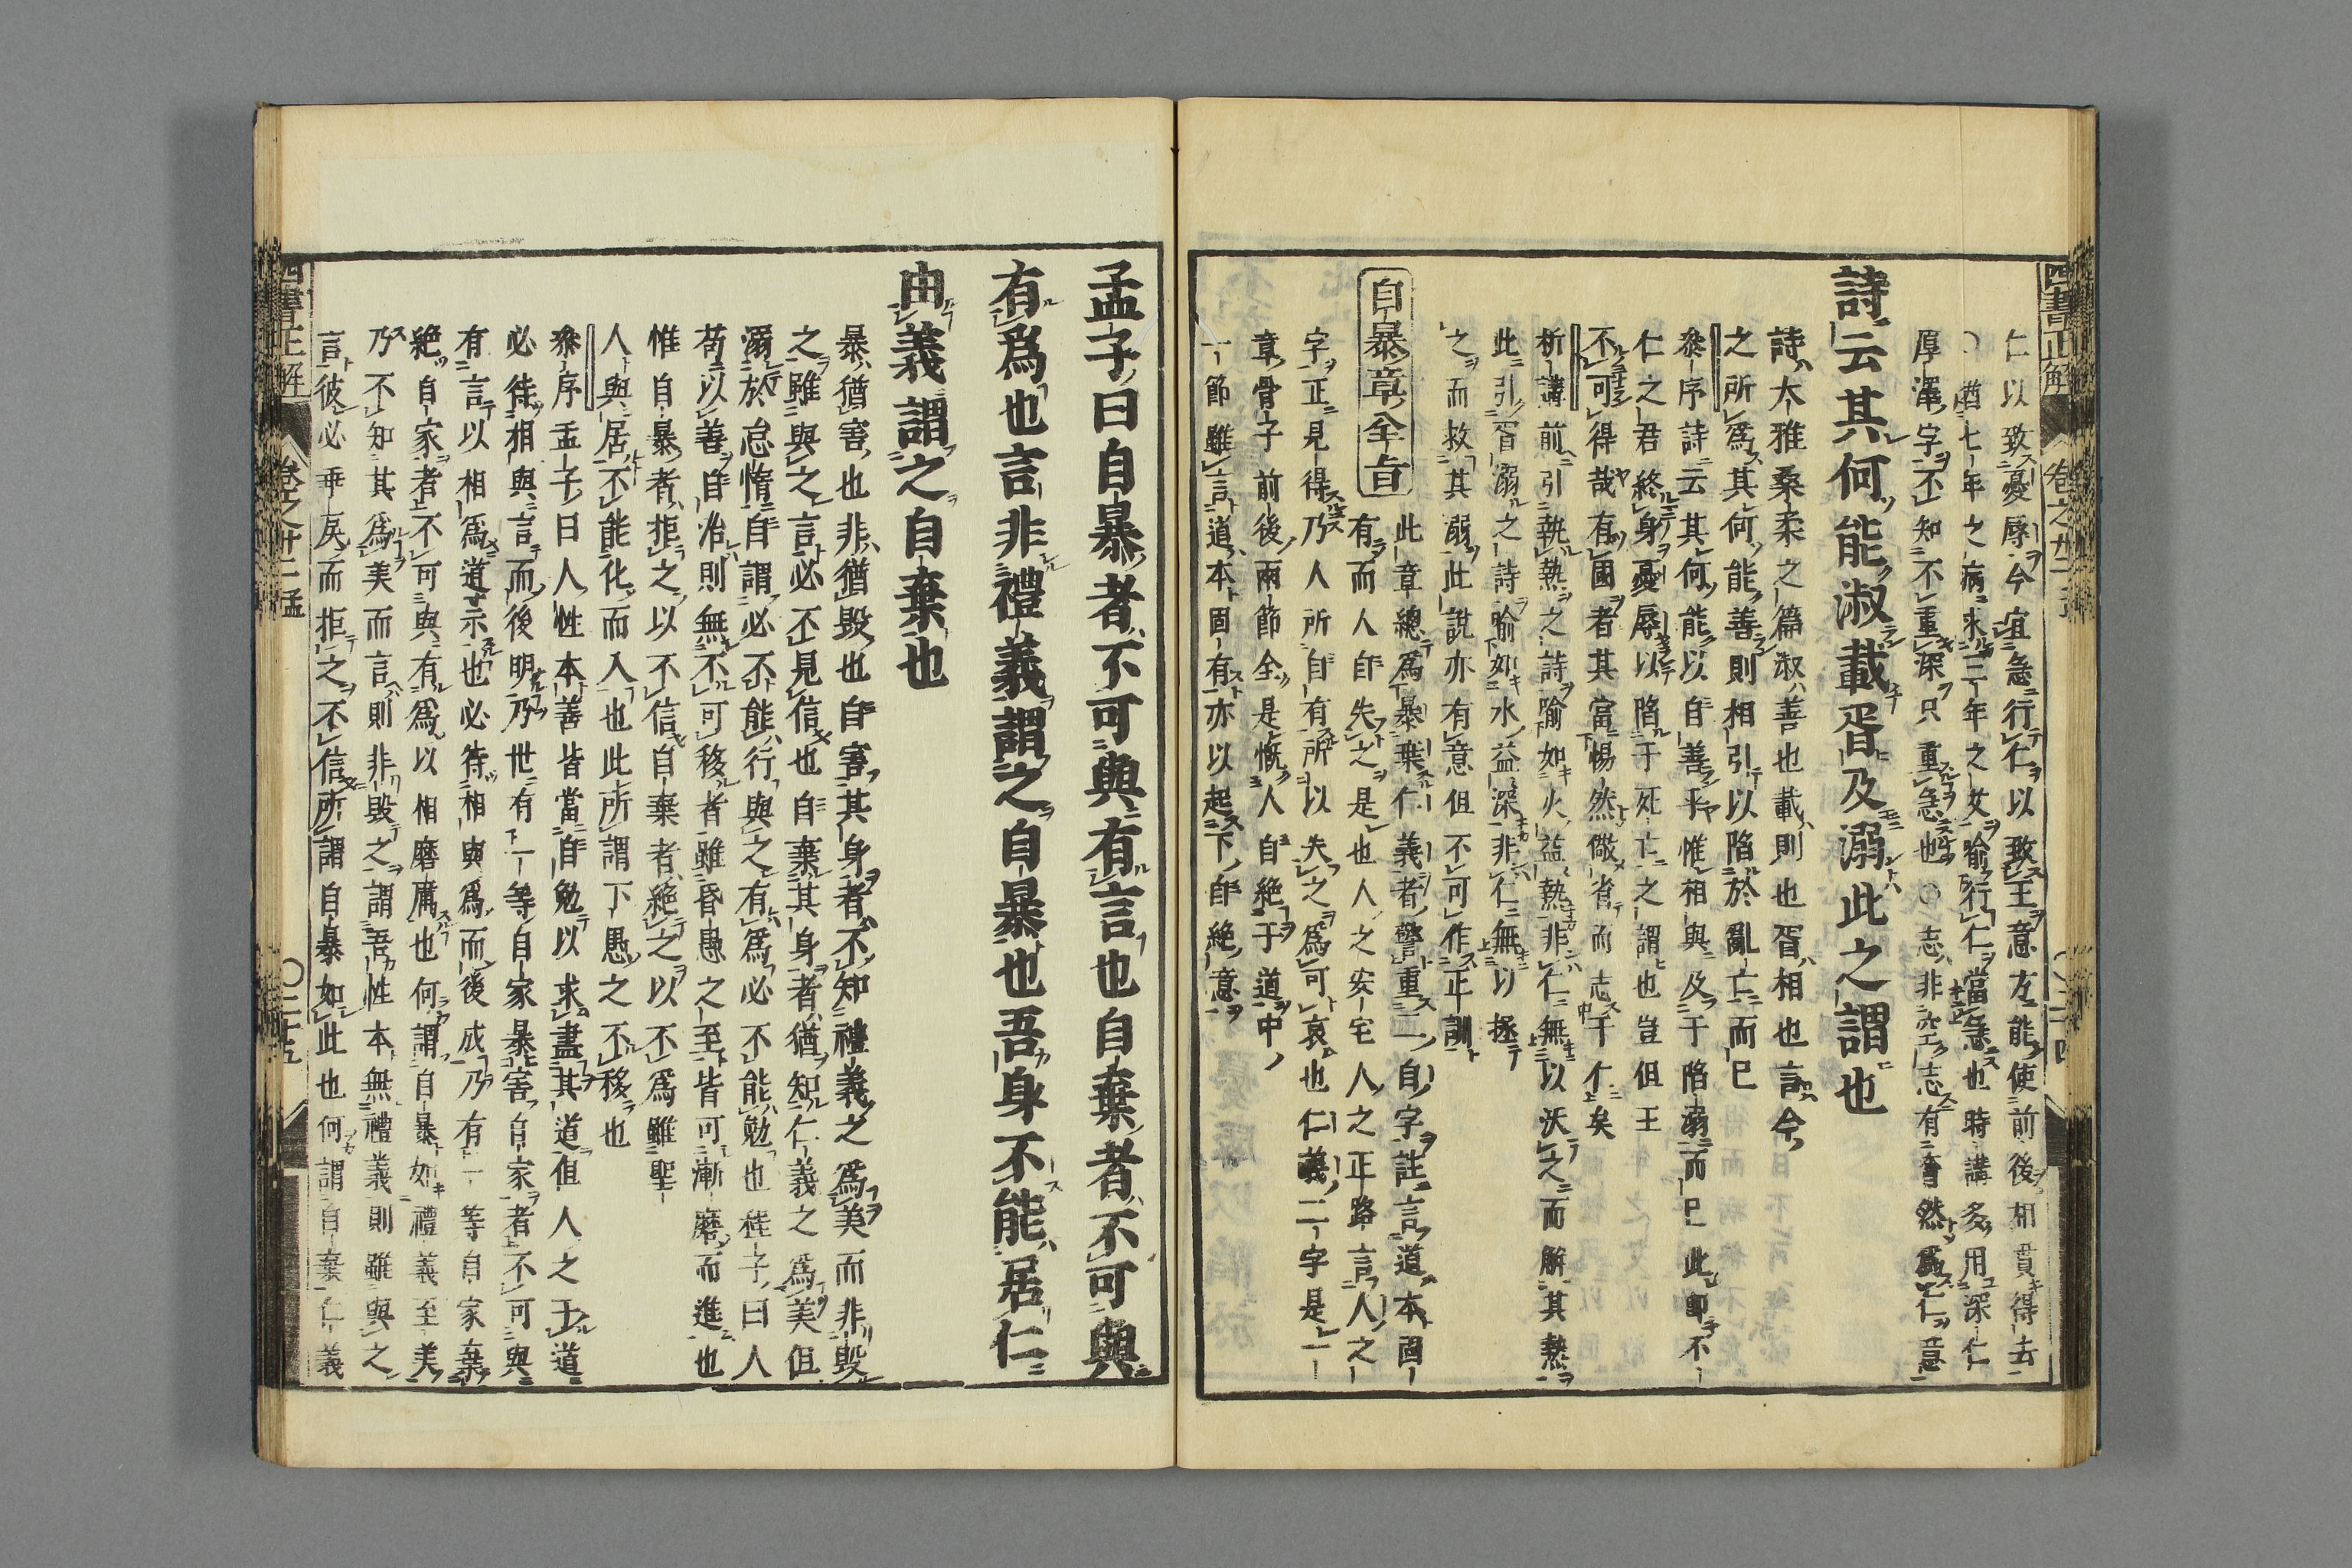 仁以致憂辱今宜急行仁以致王意方能使前後相貫得去
○猶七年之病求三年之艾喻行仁當急也時講多用深仁
厚澤字不知不重深只重急也○志非空志有奮然爲仁意
詩云其何能淑載胥及溺此之謂也
詩大雅桑柔之篇淑善也載則也胥相也言今
之所爲其何能善則相引以陷於亂亡而已
叅序詩云其何能以自善乎惟相與及于陷溺而已此卽不
仁之君終身憂辱以陷于死亡之謂也豈但王
不可得哉有國者其當惕然儆省而志于仁矣
析講前引執熱之詩喻如火益熱非仁無以沃之而解其熱
此引胥溺之詩喻如水益深非仁無以拯
之而救其溺此說亦有意但不可作正訓
自暴章全旨
此章總爲暴棄仁義者警重二自字註言道本固
有而人自失之是也人之安宅人之正路言人之
字正見得乃人所自有所以失之爲可哀也仁義二字是一
章骨子前後兩節全是慨人自絶于道中
一節雖言道本固有亦以起下自絶意
四書正解
孟子曰自暴者不可與有言也自棄者不可與
有爲也言非禮義謂之自暴也吾身不能居仁
由義謂之自棄也
暴猶害也非猶毀也自害其身者不知禮義之爲美而非毀
之雖與之言必不見信也自棄其身者猶知仁義之爲美但
溺於怠惰自謂必不能行與之有爲必不能勉也程子曰人
苟以善自治則無不可移者雖昏愚之至皆可漸磨而進也
惟自暴者拒之以不信自棄者絶之以不爲雖聖
人與居不能化而入也此所謂下愚之不移也
叅序孟子曰人性本善皆當自勉以求盡其道但人之于道
必待相與言而後明乃世有一等自家暴害自家者不可與
有言以相爲道示也必待相與爲而後成乃有一等自家棄
絶自家者不可與有爲以相磨厲也何謂自暴如禮義至美
乃不知其爲美而言則非毀之謂吾性本無禮義則雖與之
言彼必乖戾而拒之不信所謂自暴如此也何謂自棄仁義
四書正解
卷之廿二孟
○二十五